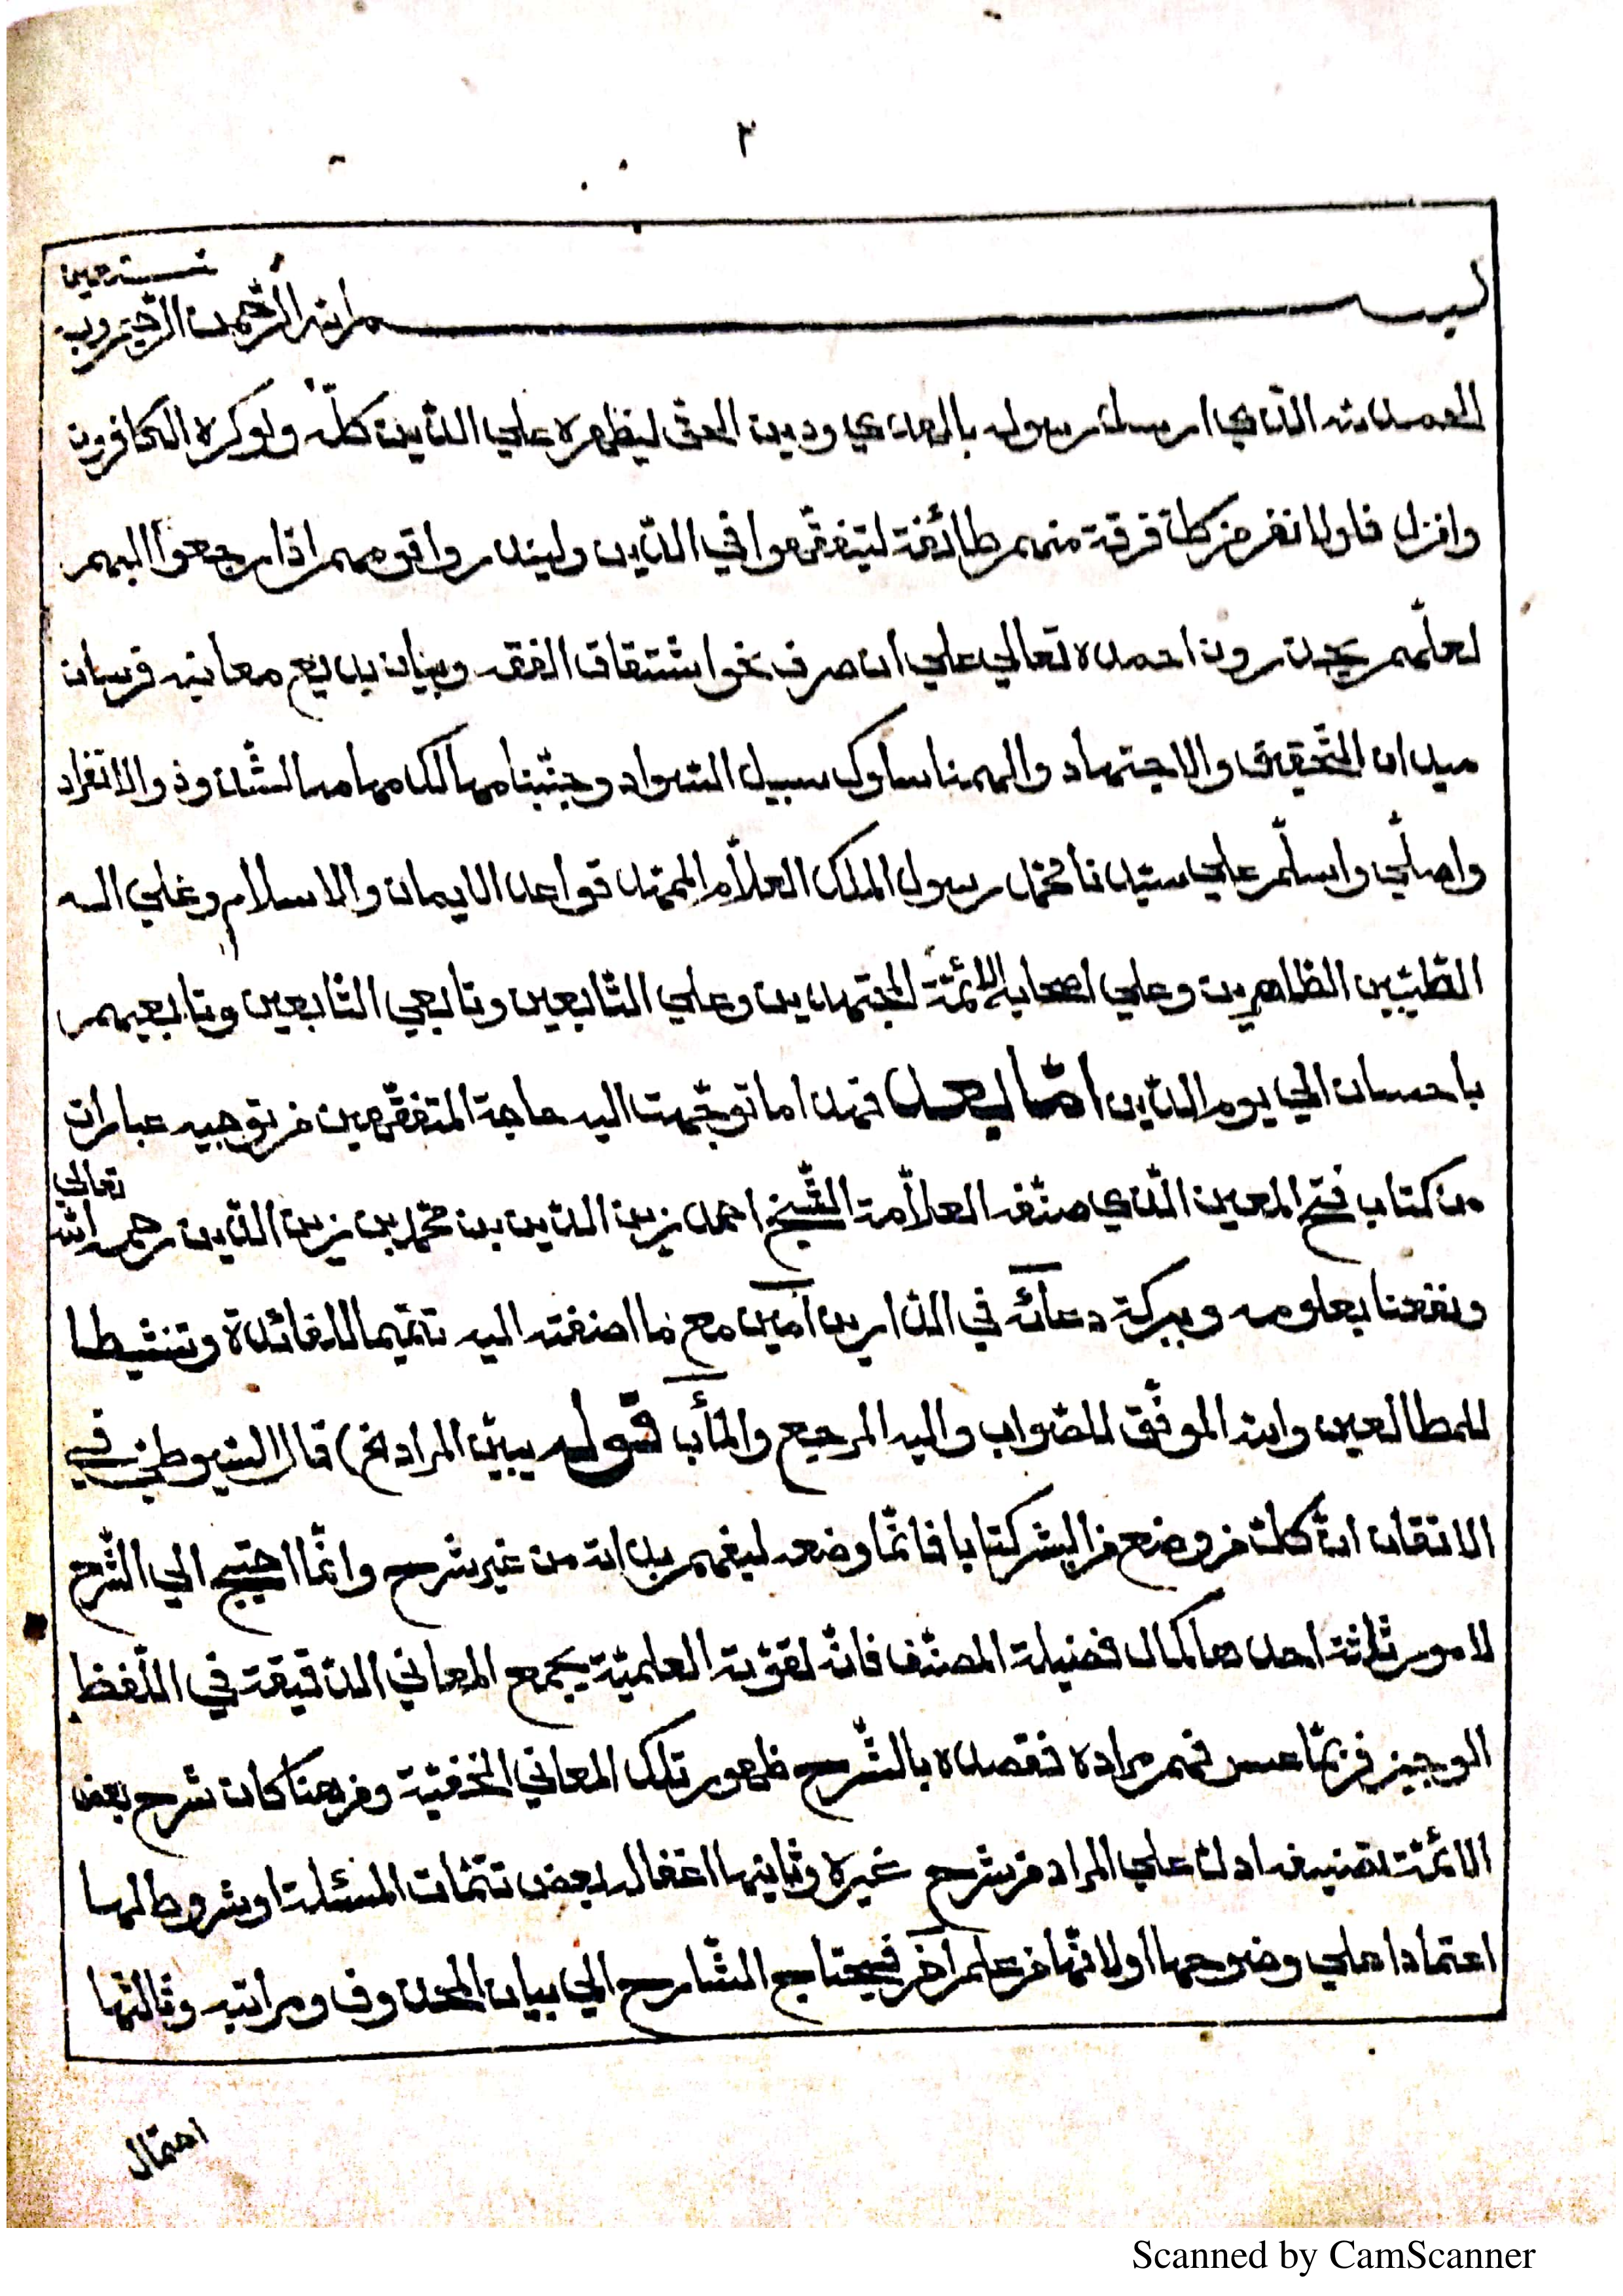 ٢
نستعين
بسم الله الرّحمن الرّحيم وبه
الحمد لله الّذي ارسل رسوله بالهدي ودين الحقّ ليظهره علي الدّين كلّه ولوكره الكافرون
وانزل فلولا نفر من كل فرقة منهم طائفة ليتفقّهوا في الدّين ولينذروا قومهم اذا رجعوا اليهم
لعلّهم يحذرون احمده تعالي علي ان صرف نحو اشتقاق الفقه وبيان بديع معانيه فرسان
ميدان التّحقيق والاجتهاد والهمنا سلوك سبيل السّواد وجنّبنا مهالك مهامه الشّذوذ والانفراد
واصلّي واسلّم علي سيّدنا محمّد رسول الملك العلاّم الممهّد قواعد الايمان والاسلام وعلي اله
الطّيّبين الطّاهرين وعلي اصحابه الائمّة المجتهدين وعلي التّابعين وتابعي التّابعين وتابعيهم
باحسان الي يوم الدّين امّا بعد فهذا ما توجّهت اليه حاجة المتفقّهين من توجيه عبارات
من كتاب فتح المعين الّذي صنّفه العلاّمة الشّيخ احمد زين الدّين بن محمّد بن زين الدّين رحمه الله تعالي
ونفعنا بعلومه وببركة دعائه في الدّارين آمين مع ما اضفته اليه تتميما للفائدة وتنشيطا
للمطالعين والله الموفّق للصّواب واليه المرجع والمآب قوله يبيّن المراد الخ) قال السّيوطي في
الاتقان انّ كلّ من وضع من البشر كتابا فانّما وضعه ليفهم بذاته من غير شرح وانّما احتيج الي الشّرح
لامور ثلاثة احدها كمال فضيلة المصنّف فانّه لقوّته العلميّة يجمع المعاني الدّقيقة في اللّفظ
الوجيز فربّما عسر فهم مراده فقصده بالشّرح ظهور تلك المعاني الخفيّة ومن هنا كان شرح بعض
الائمّة تصنيفه ادلّ علي المراد من شرح غيره وثانيها اغفاله بعض تتمّات المسئلة او شروط لها
اعتمادا علي وضوحها اولانّها من علم آخر فيحتاج الشّارح الي بيان المحذوف ومراتبه وثالثها
احتمال
Scanned by CamScanner